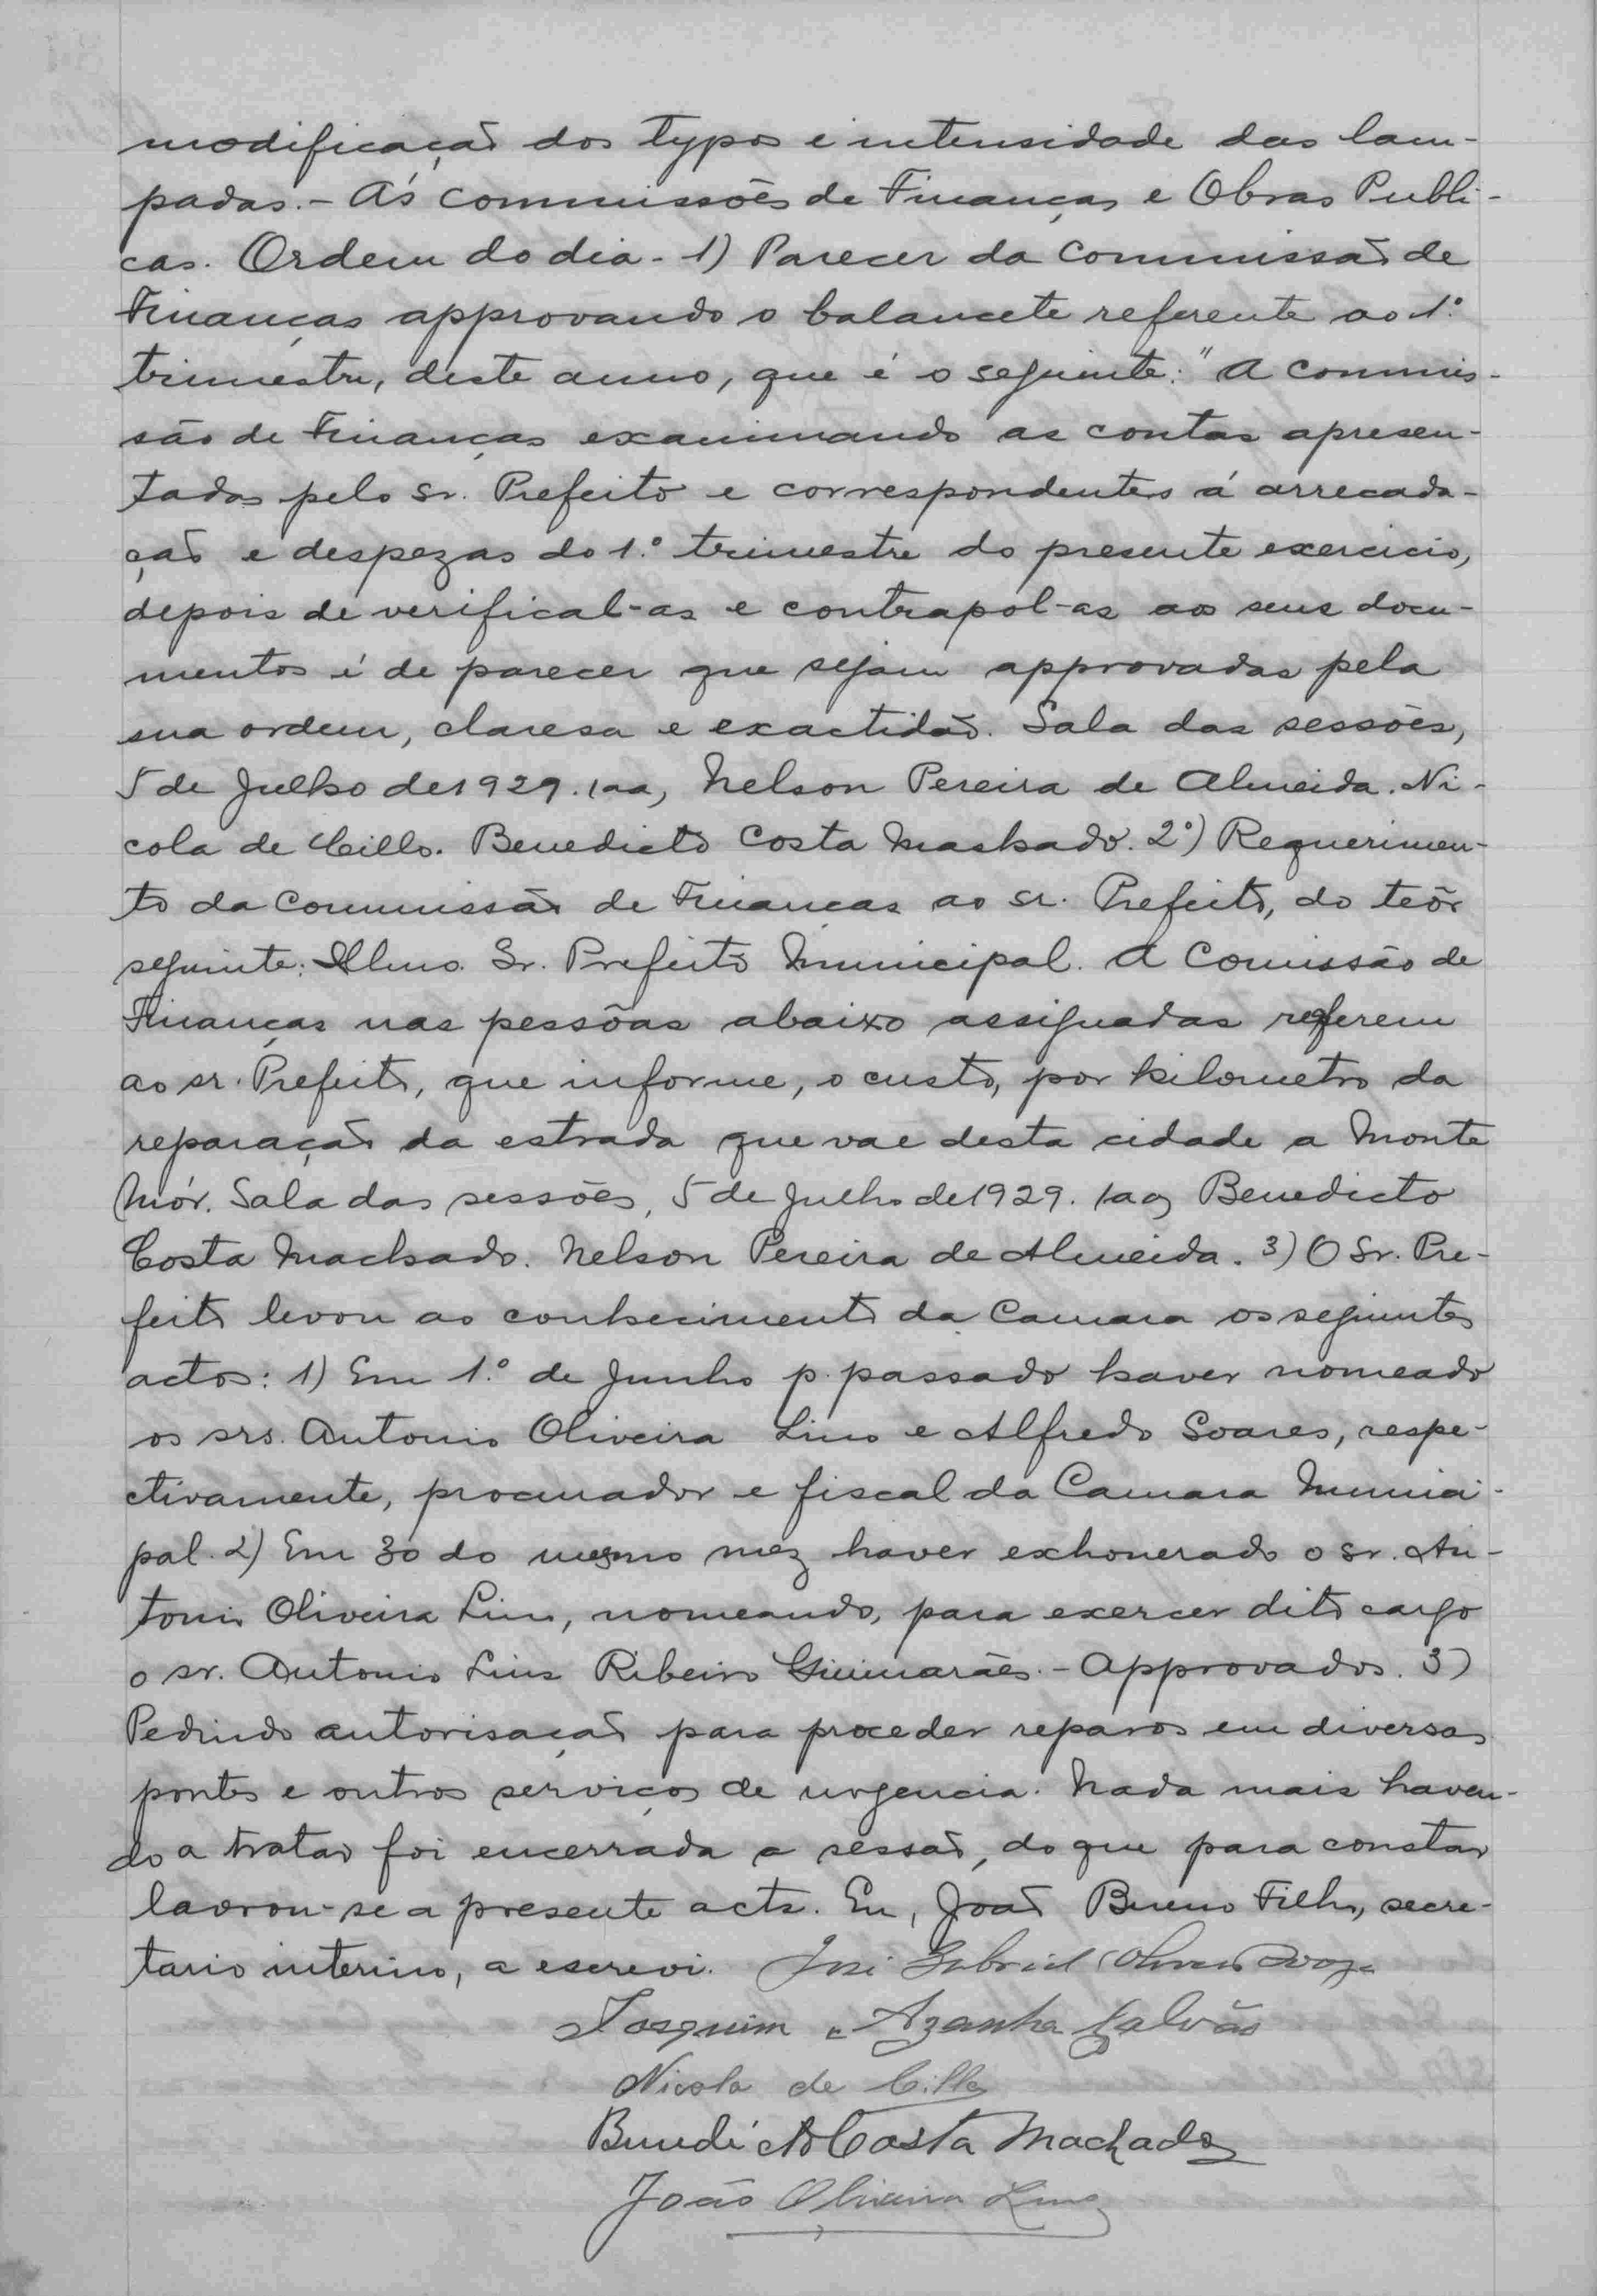 modificação dos typos e intensidade das lam-
padas.- Ás commissões de Finanças e Obras Publi-
cas. Ordem do dia - 1) Parecer da Commissão de
Finanças approvando o balancete referente ao 1º
trimestre, deste anno, que é o seguinte: "A commis-
são de Finanças examinando as contas apresen-
tadas pelo sr. Prefeito e correspondentes á arrecada-
ção e despezas do 1º trimestre do presente exercicio,
depois de verifical-as e contrapol-as aos seus docu-
mentos é de parecer que sejam approvadas pela
sua ordem, claresa e exactidão. Sala das sessões,
5 de Julho de 1929. (aa) Nelson Pereira de Almeida. Ni-
cola de Cillo. Benedicto Costa Machado. 2º) Requerimen-
to da Commissão de Finanças ao sr. Prefeito, do teôr
seguinte: Illmo. Sr. Prefeito Municipal. A Comissão de
Finanças nas pessôas abaixo assignadas requerem
ao sr. Prefeito, que informe, o custo, por kilometro da
reparação da estrada que vae desta cidade a Monte
Mór. Sala das sessões, 5 de Julho de 1929. (aa) Benedicto
Costa Machado. Nelson Pereira de Almeida. 3) O Sr. Pre-
feito levou ao conhecimento da Camara os seguintes
actos: 1) Em 1º de Junho p. passado haver nomeado
os srs. Antonio Oliveira Lino e Alfredo Soares, respe-
ctivamente, procurador e fiscal da Camara Munici-
pal. 2) Em 30 do mesmo mez haver exhonerado o sr. An-
tonio Oliveira Lino, nomeando, para exercer dito cargo
o sr. Antonio Lins Ribeiro Guimarães. - Approvados. 3)
Pedindo autorisação para proceder reparos em diversas
pontes e outros serviços de urgencia. Nada mais haven-
do a tratar foi encerrada a sessão, do que para constar
lavrou-se a presente acta. Eu, João Bueno Filho, secre-
tario interino, a escrevi. José Gabriel
Joaquim Azanha Galvão
Nicola de Cillo
Benedicto Costa Machado
João Oliveira Lino